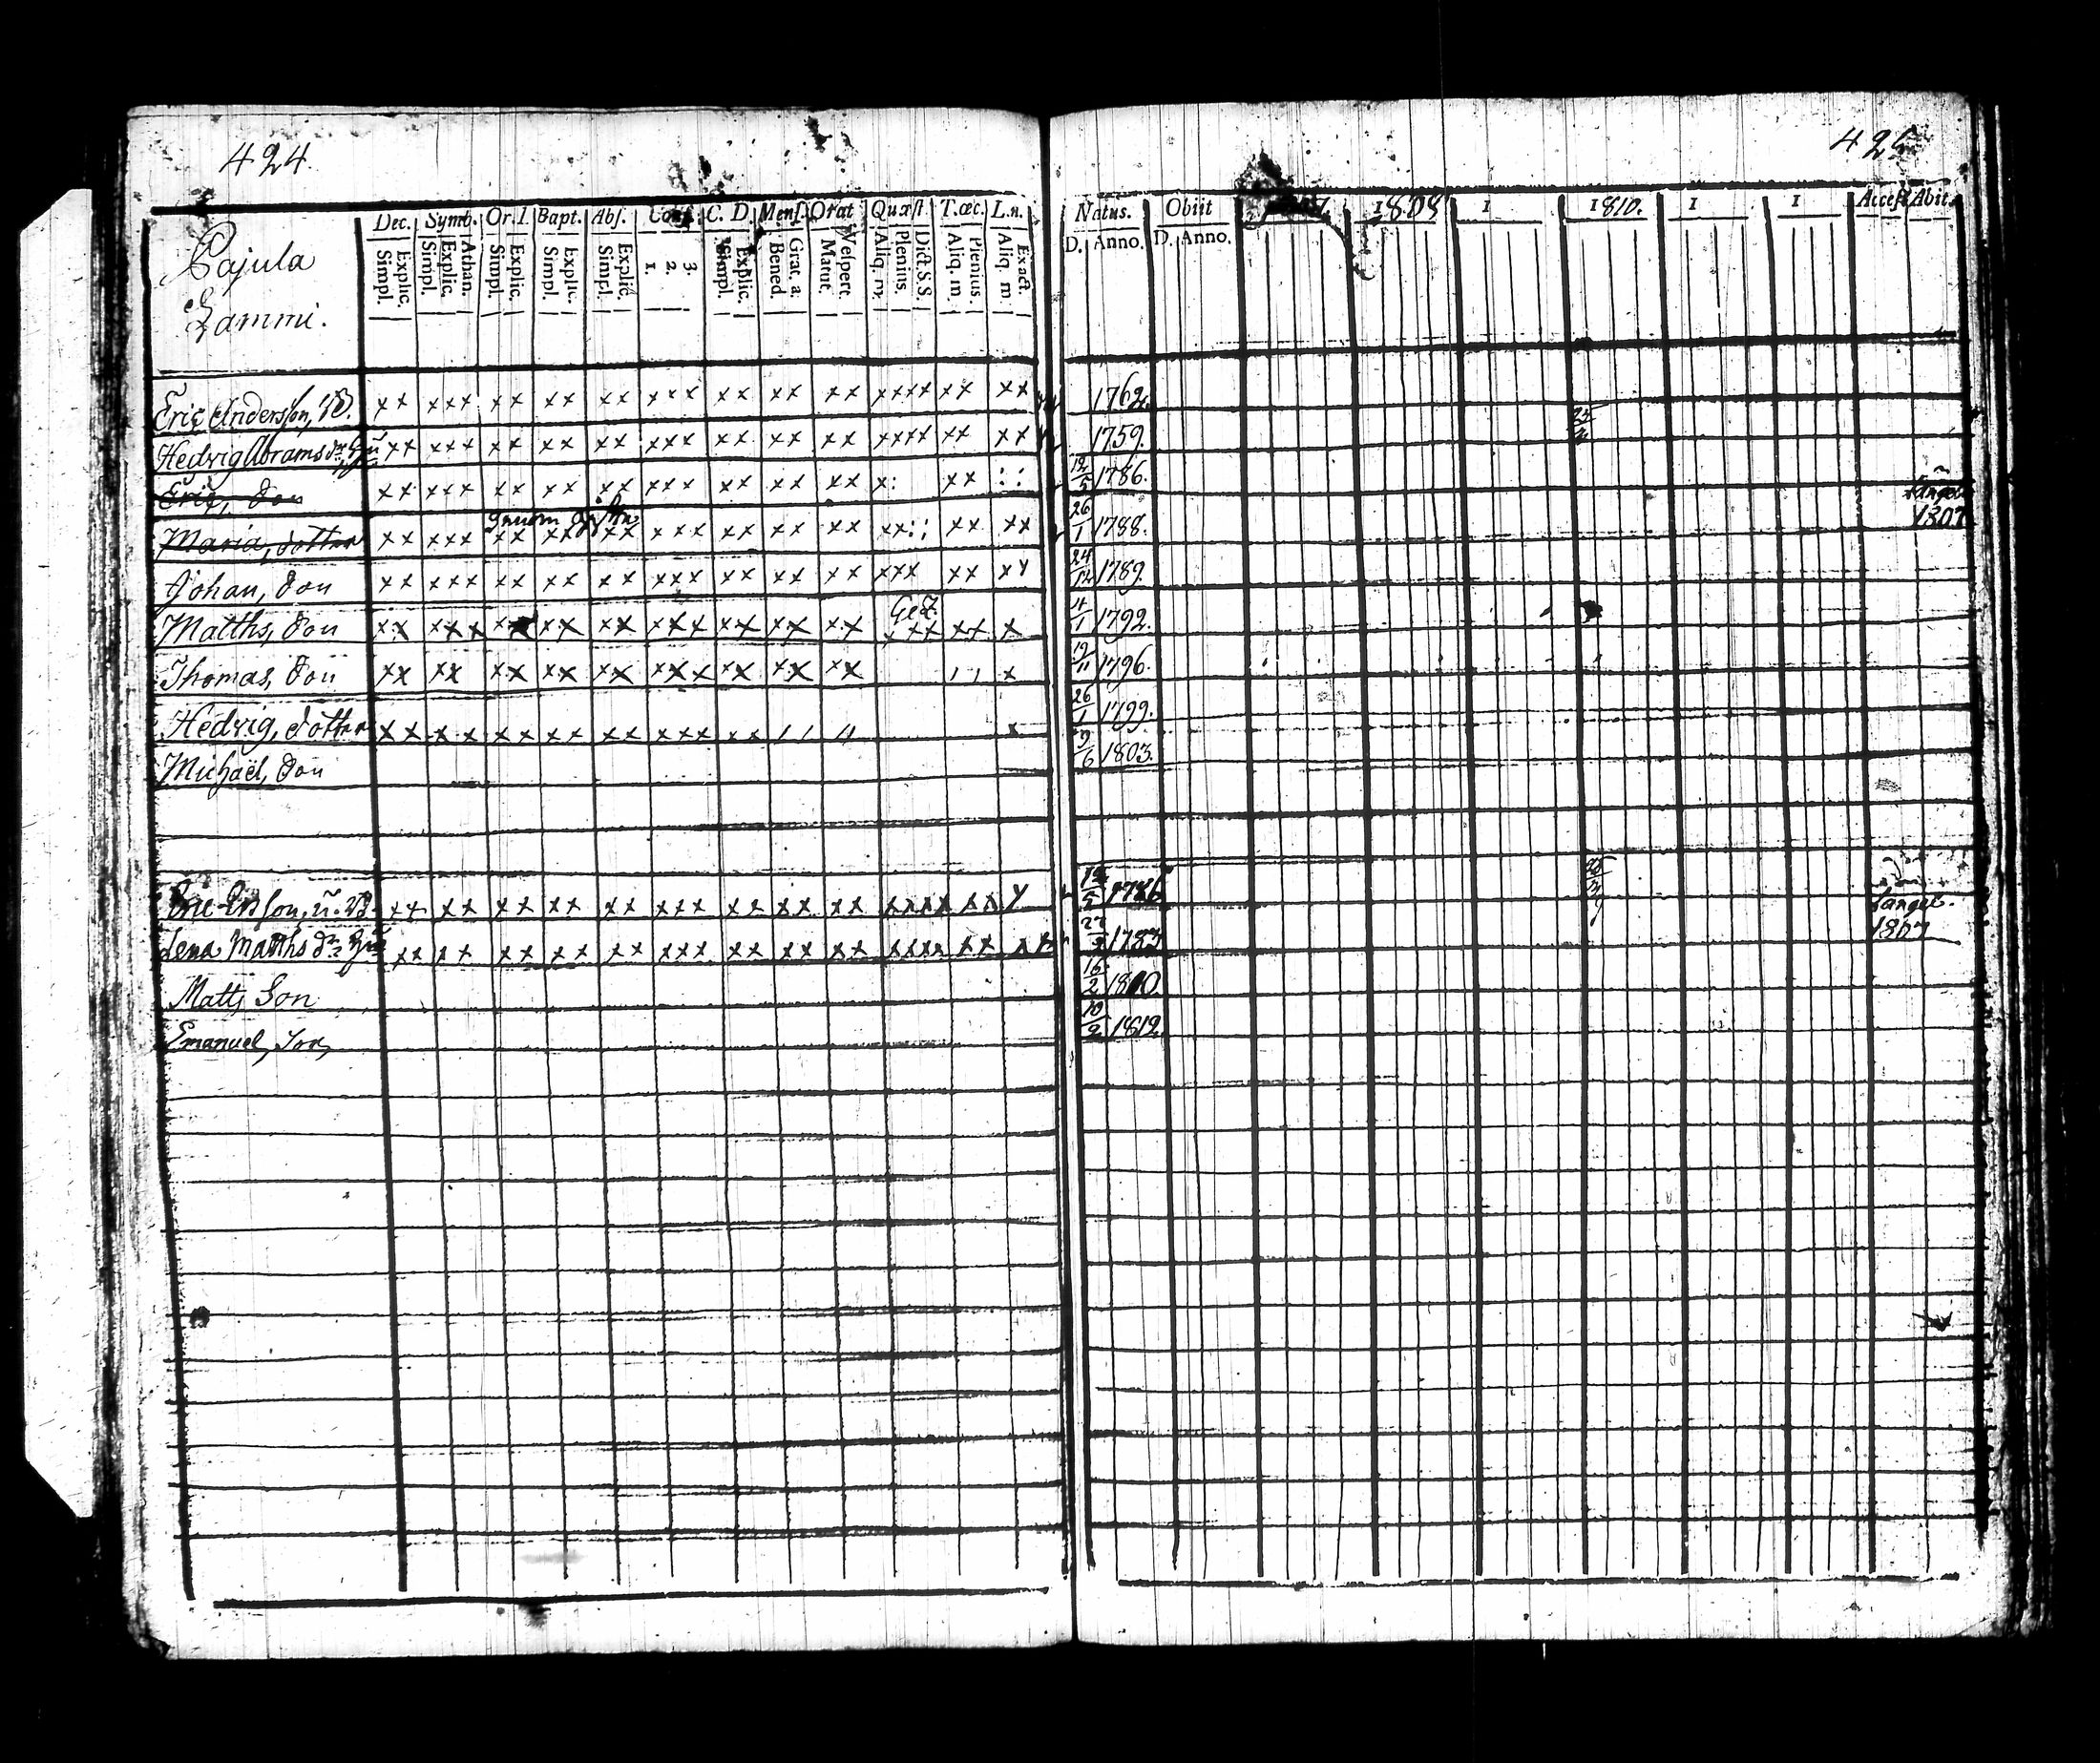 424.
425
Cajula
Lammi.
Dec. Symb. Or. I. Bapt. Abſ. Conf. C. D. Menſ. Orat Quæſt T. œc. L. n.
Simpl. Explic. Simpl. Explic. Athan. Simpl. Explic. Simpl. Explic. Simpl. Explic. 1. 2. 3. Simpl. Explic. Bened. Grat. a. Matut. Veſpert. Aliq. m. Plenius. Dict. S. S. Aliq. m Plenius. Aliq. m Exact.
Natus. Obiit 1808 1 1810. 1 1 Acceſſ Abit.
D. Anno. D. Anno.
Eric Andersſon, xx xxx xx xx xx xxx xx xx xx xxxx xx xx 1762.
Hedvig Abrams dr xx xxx xx xx xx xxx xx xx xx xxxx xx xx 1759.
Eric, Son xx xxx xx xx xx xxx xx xx xx x: xx :: 12/5 1786.
Maria, dotter xx xxx xx xx xx xxx xx xx xx xx:: xx xx 26/1 1788. 1807
Johan, Son xx xxx xx xx xx xxx xx xx xx xxx xx xx 24/12 1789.
Matths, Son xx xxx xx xx xx xxx xx xx xx xxx xx x 4/1 1792.
Thomas, Son xx xx xx xx xx xxx xx xx xx ,, x 19/11 1796.
Hedvig, dotter xx xx xx xx xx xxx xx ,, ,, x 26/1 1799.
Michaël, Son 9/6 1803.
Eric Ersſon, xx xx xx xx xx xxx xx xx xx xxxx xx x 12/5 1786
Lena Matths dr xx xx xx xx xx xxx xx xx xx xxxx xx xx 1783 1807
Matts Son 16/2 1810.
Emanuel, Son, 10/2 1812.